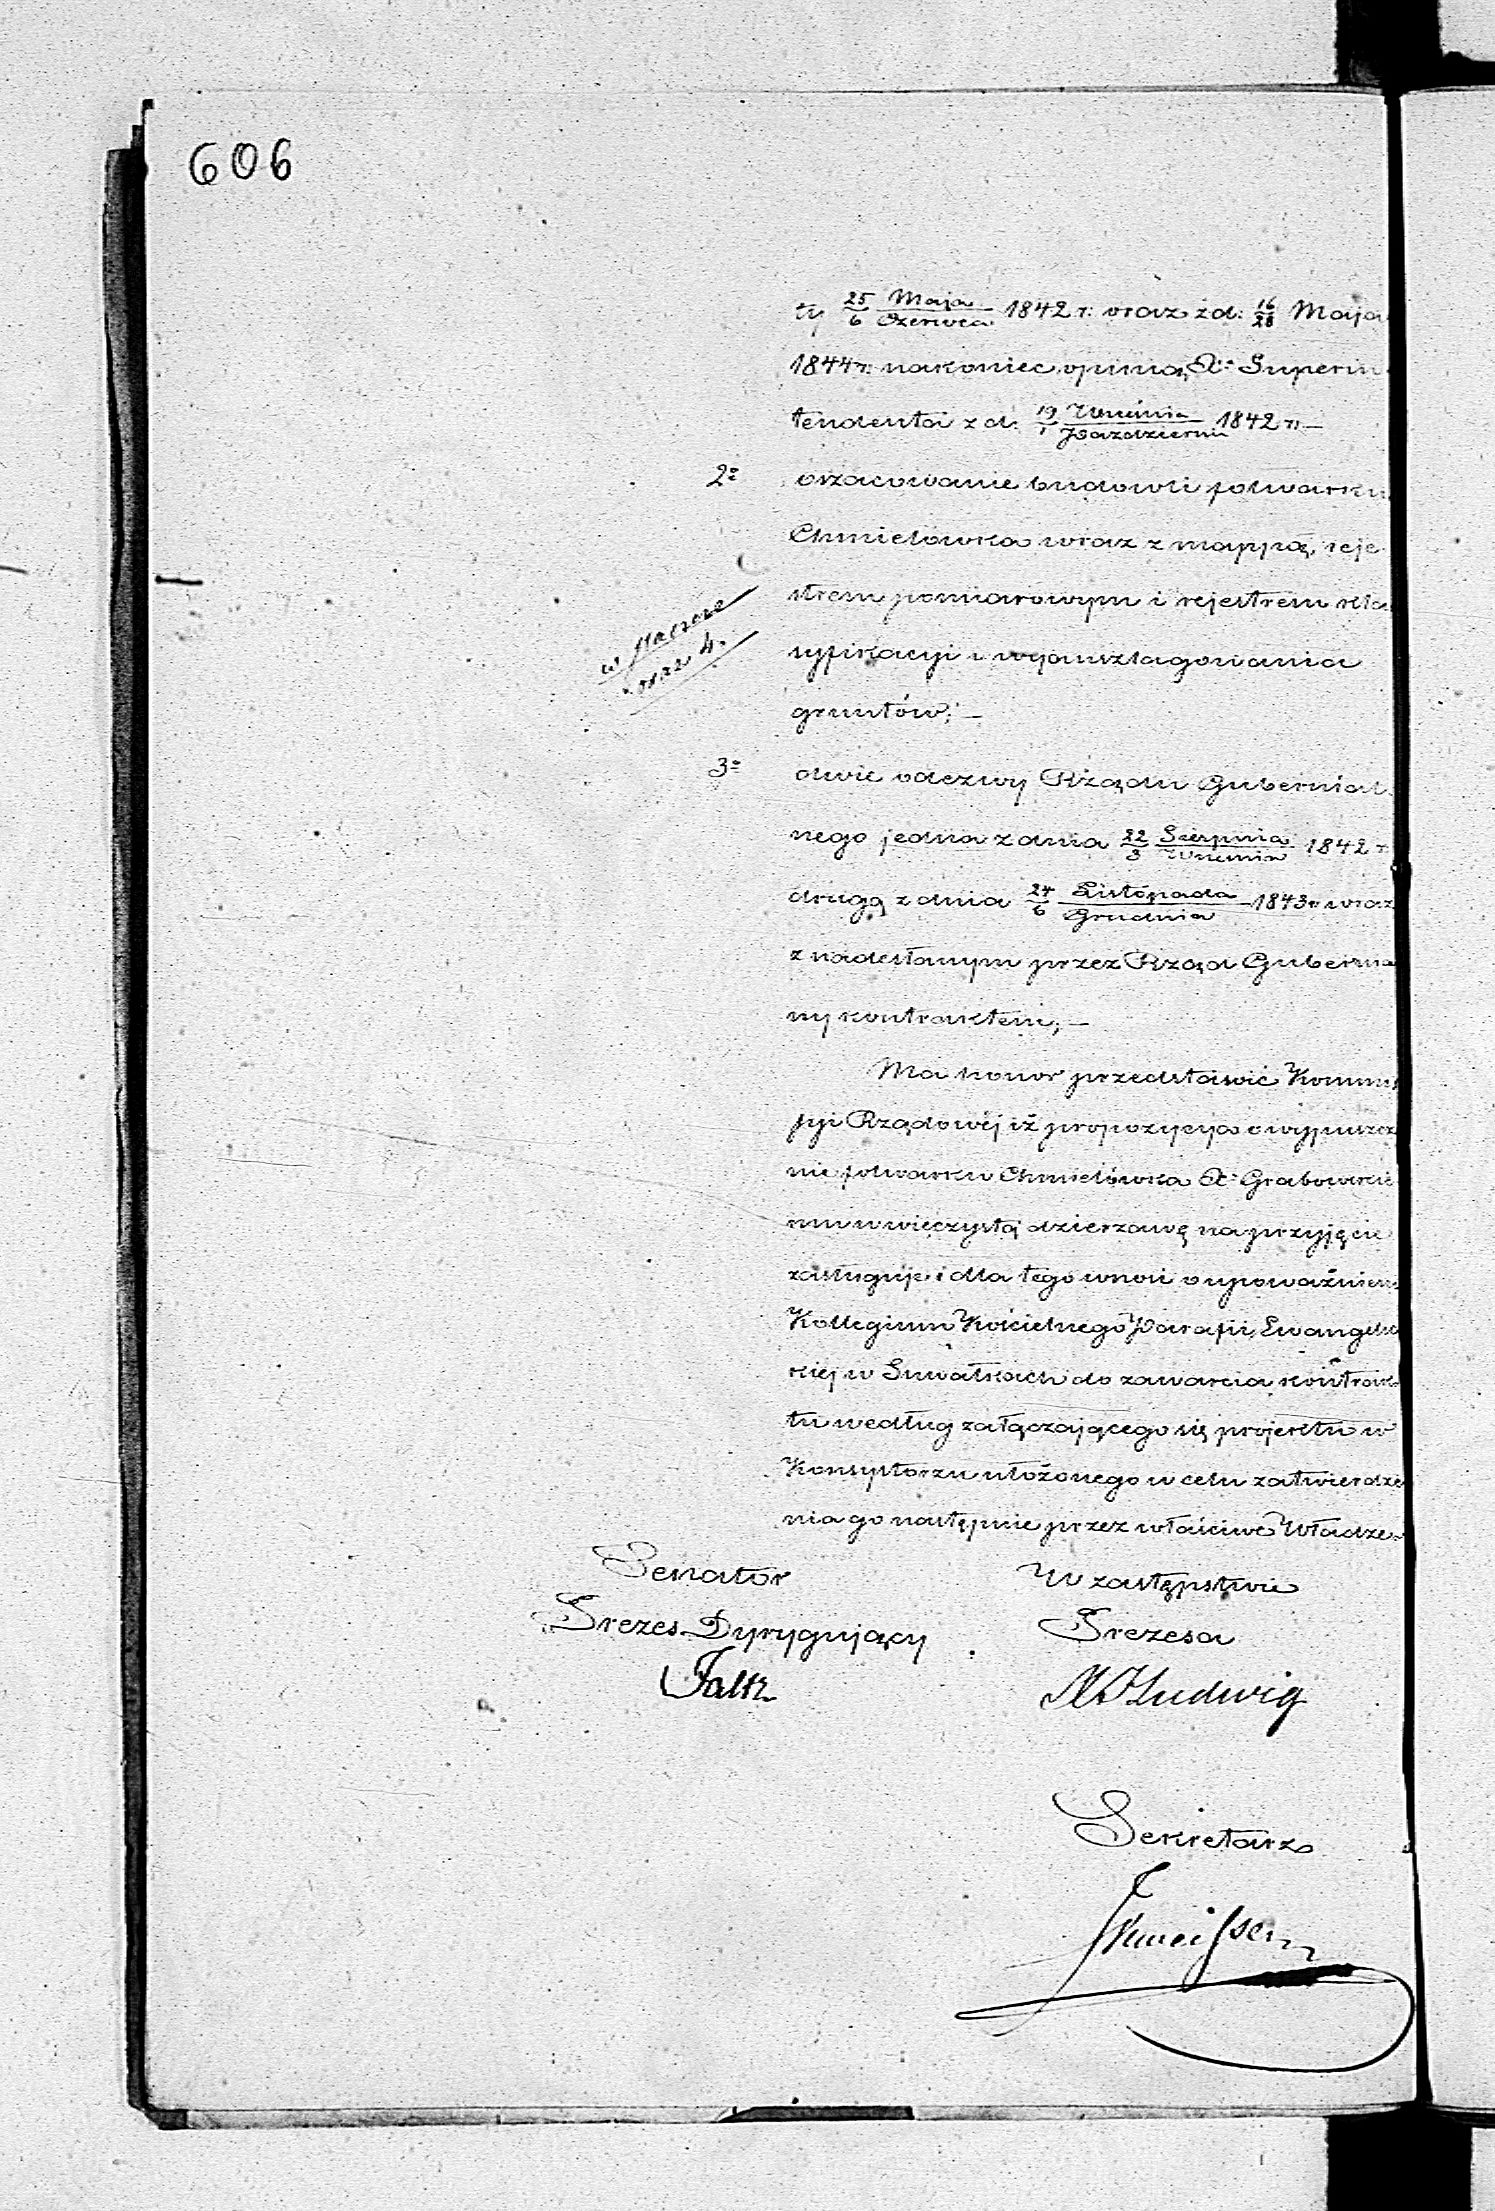 606
ty 25/6 Maja/Czerwca 1842 r: oraz z d: 16/28 Maja
1844 r: nakoniec opinią X: Superin
tendenta z d. 19/1 Września/Październ 1842 r:—
2° oszacowanie budowli folwarku
Chmielówka wraz z mappą, reje
strem pomiarowym i rejestrem kla
syfikacyi i wyanszlagowania
gruntów;—
w
oraz 4.
3° dwie odezwy Rządu Gubernial
nego jedna z dnia 22/3 Sierpnia/Września 1842 r
drugą z dnia 24/6 Listopada/Grudnia 1843 r wraz
z nadesłanym przez Rząd Gubernia
ny kontraktem;—
Ma honor przedstawić Kommis
syi Rządowéj iż propozycya o wypuszcze
nie folwarku Chmielówka X: Grabowskie
mu w wieczystą dzierzawę na przyjęcie
zasługuje i dla tego wnosi o upoważnien
Kollegium Kościelnego Parafii Ewangelic
kiej w Suwałkach do zawarcia kontrak
tu według załączającego się projektu w
Konsystorzu ułożonego w celu zatwierdze
nia go następnie przez właściwe Władze.
Senator
Prezes Dyrygujący
Falz
W zastępstwie
Prezesa
Ludwig
Sekretarz